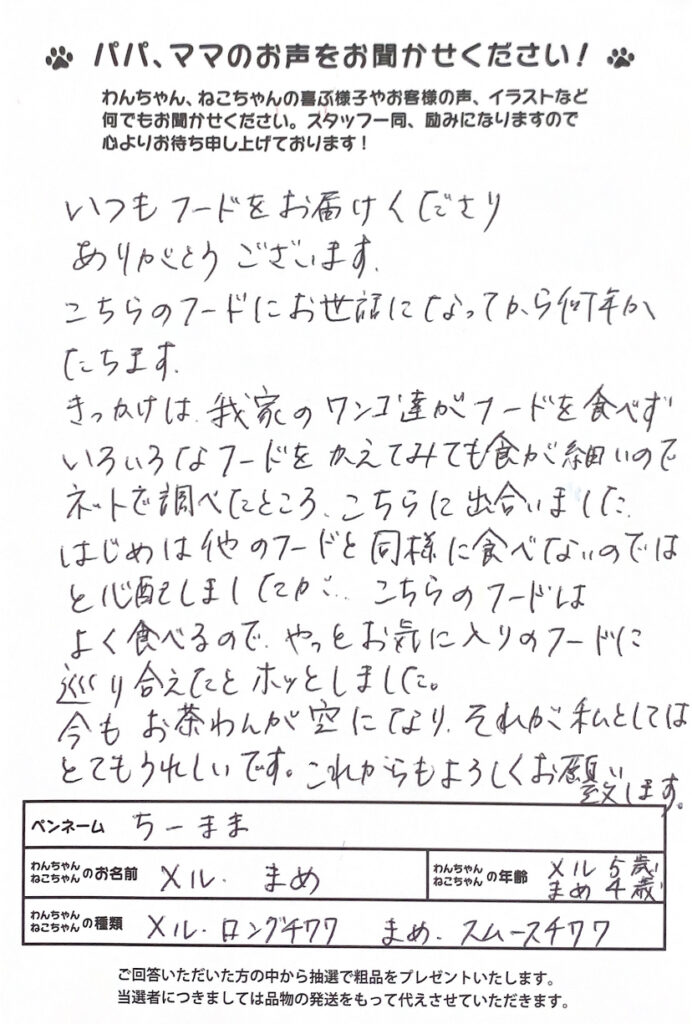 パパ、ママのお声をお聞かせください！
わんちゃん、ねこちゃんの喜ぶ様子やお客様の声、イラストなど
何でもお聞かせください。スタッフ一同、励みになりますので
心よりお待ち申し上げております！
いつもフードをお届けくださり
ありがとうございます.
こちらのフードにお世話になってから何年か
たちます.
きっかけは、我家のワンコ達がフードを食べず
いろいろなフードをかえてみても食が細いので
ネットで調べたところ、こちらに出合いました.
はじめは他のフードと同様に食べないのでは
と心配しましたが.. こちらのフードは
よく食べるので、やっとお気に入りのフードに
巡り合えたとホッとしました。
今もお茶わんが空になり、それが私としては
とてもうれしいです。これからもよろしくお願い
致します。
ペンネーム ちーまま
わんちゃん ねこちゃん のお名前 メル. まめ
わんちゃん ねこちゃん の年齢 メル 5歳 まめ 4歳
わんちゃん ねこちゃん の種類 メル. ロングチワワ まめ. スムースチワワ
ご回答いただいた方の中から抽選で粗品をプレゼントいたします。
当選者につきましては品物の発送をもって代えさせていただきます。